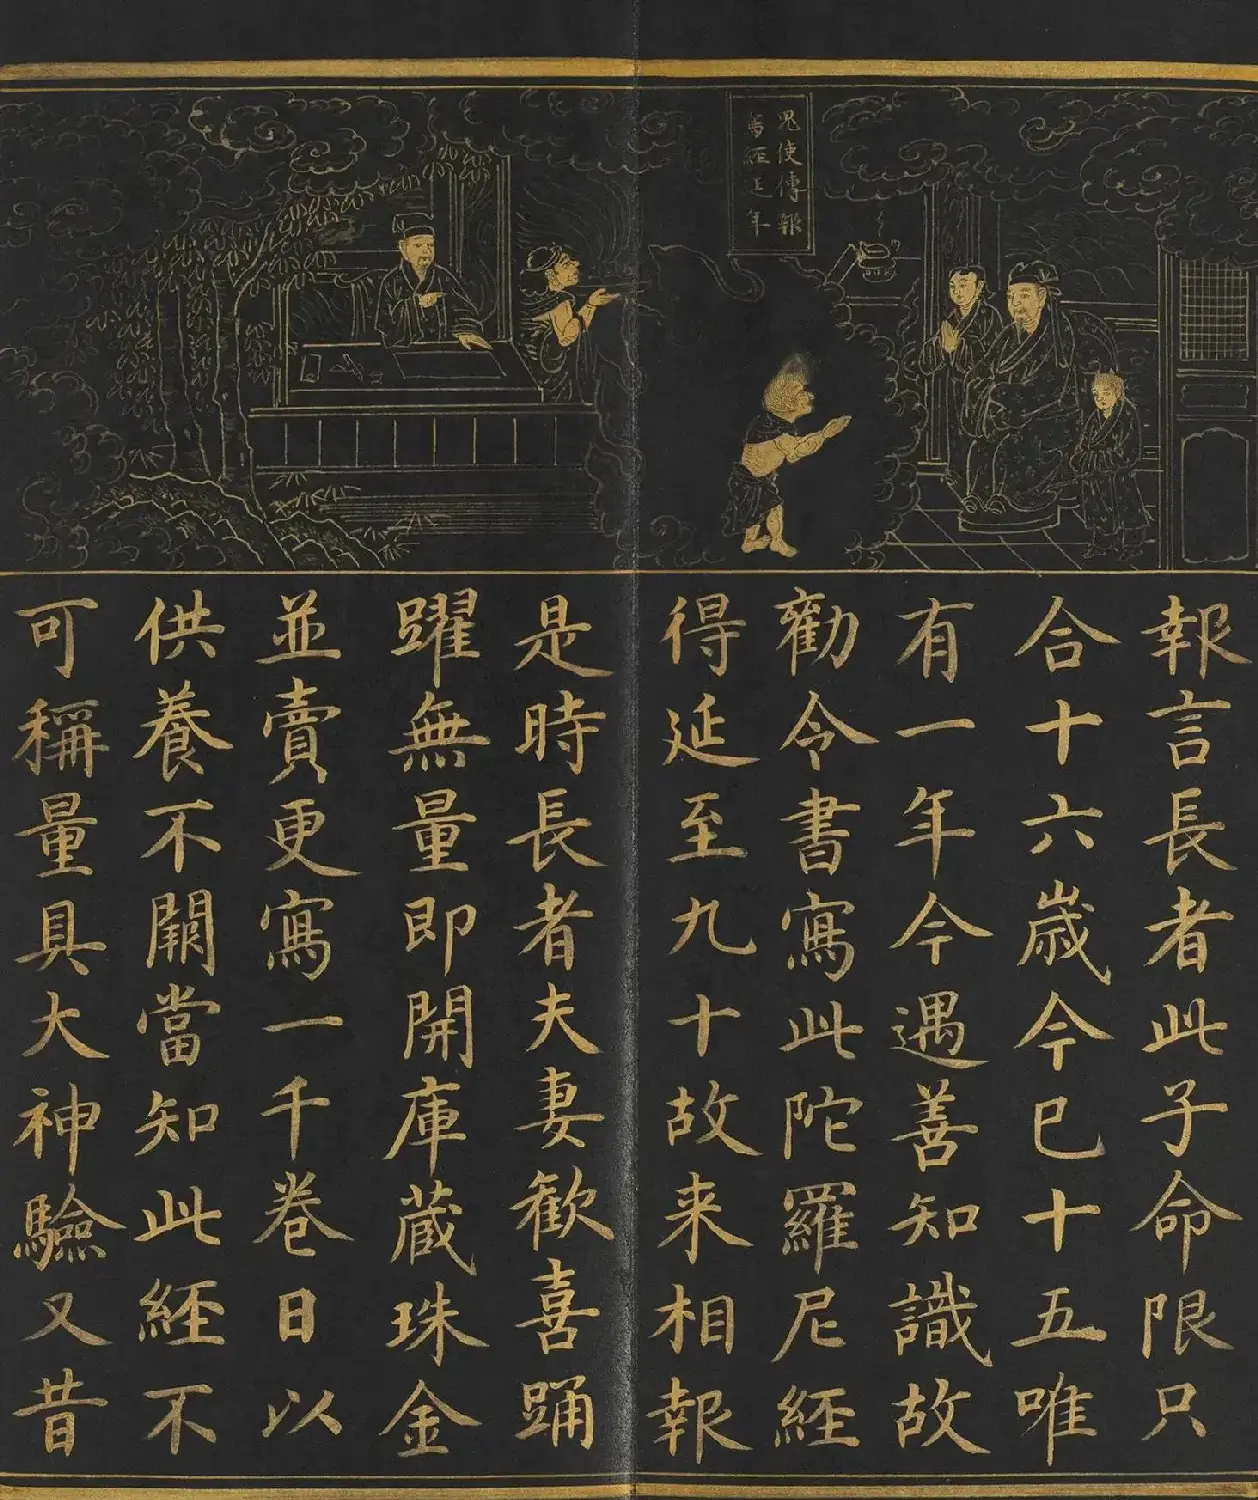 鬼使傳報
寫經延年
報言長者此子命限只
合十六歲今巳十五唯
有一年今遇善知識故
勸令書寫此陀羅尼經
得延至九十故来相報
是時長者夫妻歡喜踊
躍無量即開庫藏珠金
並賣更寫一千卷日以
供養不闕當知此經不
可稱量具大神驗又昔